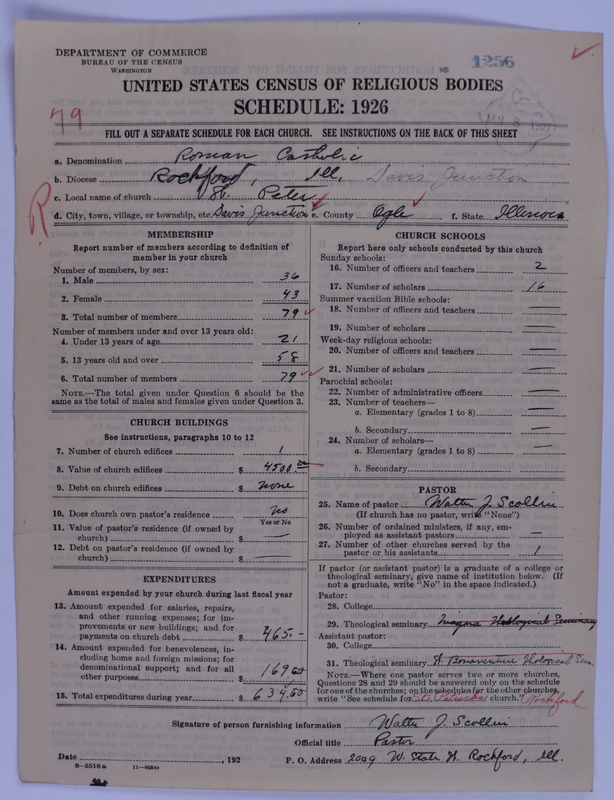 DEPARTMENT OF COMMERCE
BUREAU OF THE CENSUS
WASHINGTON
1256
UNITED STATES CENSUS OF RELIGIOUS BODIES
SCHEDULE: 1926
79
FILL OUT A SEPARATE SCHEDULE FOR EACH CHURCH. SEE INSTRUCTIONS ON THE BACK OF THIS SHEET
a. Denomination Roman Catholic
b. Diocese Rockford, Ill. Davis Junction
c. Local name of church St. Peter
R
d. City, town, village, or township, etc. Davis Junction e. County Ogle f. State Illinois
MEMBERSHIP
Report number of members according to definition of
member in your church
Number of members, by sex:
1. Male 36
2. Female 43
3. Total number of members 79
Number of members under and over 13 years old:
4. Under 13 years of age 21
5. 13 years old and over 58
6. Total number of members 79
NOTE.—The total given under Question 6 should be
same as the total of males and females given under Question 3.
CHURCH BUILDINGS
See instructions, paragraphs 10 to 12
7. Number of church edifices 1
8. Value of church edifices $ 4500.00
9. Debt on church edifices $ none
10. Does church own pastor's residence no
Yes or No
11. Value of pastor's residence (if owned by
church) $ —
12. Debt on pastor's residence (if owned by
church) $ —
EXPENDITURES
Amount expended by church during last fiscal year
13. Amount expended for salaries, repairs,
and other running expenses; for im-
provements or new buildings; and for
payments on church debt $ 465.—
14. Amount expended for benevolences, in-
cluding home and foreign missions; for
denominational support; and for all
other purposes $ 169.60
15. Total expenditures during year $ 634.60
CHURCH SCHOOLS
Report here only schools conducted by this church
Sunday schools:
16. Number of officers and teachers 2
17. Number of scholars 16
Summer vacation Bible schools:
18. Number of officers and teachers —
19. Number of scholars —
Week-day religious schools:
20. Number of officers and teachers —
21. Number of scholars —
Parochial schools:
22. Number of administrative officers —
23. Number of teachers—
a. Elementary (grades 1 to 8) —
b. Secondary —
24. Number of scholars—
a. Elementary (grades 1 to 8) —
b. Secondary —
PASTOR
25. Name of pastor Walter J. Scollin
(If church has no pastor, write "None")
26. Number of ordained ministers, if any, em-
ployed as assistant pastors —
27. Number of other churches served by the
pastor or his assistants 1
If pastor (or assistant pastor) is a graduate of a college or
theological seminary, give name of institution below. (If
not a graduate, write "No" in the space indicated.)
Pastor:
28. College
29. Theological seminary Theological Seminary
Assistant pastor:
30. College
31. Theological seminary St Bonaventure Sem.
NOTE.—Where one pastor serves two or more churches,
Questions 28 and 29 should be answered only on the schedule
for one of the churches; on the schedules for the other churches,
write "See schedule for St. Patricks church." Rockford
Signature of person furnishing information Walter J. Scollin
Official title Pastor
Date , 192 P. O. Address 2009 W. State St. Rockford, Ill.
8—5518a 11—9254